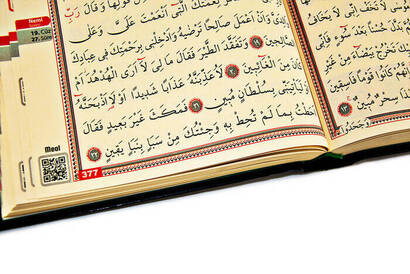 حُسْنًا بَعْدَ سُوءٍ
تَخْرُجْ بَيْضَاءَ مِنْ غَيْرِ
كَانُوا قَوْمًا فَاسِقِينَ
سِحْرٌ مُبِينٌ ﴿١٣﴾
وَجَحَدُوا
Neml
19. Cüz
27. Sûre
قَوْلِهَا وَقَالَ رَبِّ
نِعْمَتَكَ الَّتِي أَنْعَمْتَ عَلَيَّ وَعَلَى
وَالِدَيَّ وَأَنْ أَعْمَلَ صَالِحًا تَرْضٰيهُ وَأَدْخِلْنِي بِرَحْمَتِكَ فِي عِبَادِكَ
الصَّالِحِينَ ﴿١٩﴾ وَتَفَقَّدَ الطَّيْرَ فَقَالَ مَا لِيَ لَا أَرَى الْهُدْهُدَ أَمْ
كَانَ مِنَ الْغَائِبِينَ ﴿٢٠﴾ لَأُعَذِّبَنَّهُ عَذَابًا شَدِيدًا أَوْ لَأَذْبَحَنَّهُ
أَوْ لَيَأْتِيَنِّي بِسُلْطَانٍ مُبِينٍ ﴿٢١﴾ فَمَكَثَ غَيْرَ بَعِيدٍ فَقَالَ
أَحَطْتُ بِمَا لَمْ تُحِطْ بِهِ وَجِئْتُكَ مِنْ سَبَإٍ بِنَبَإٍ يَقِينٍ ﴿٢٢﴾
Meal
377